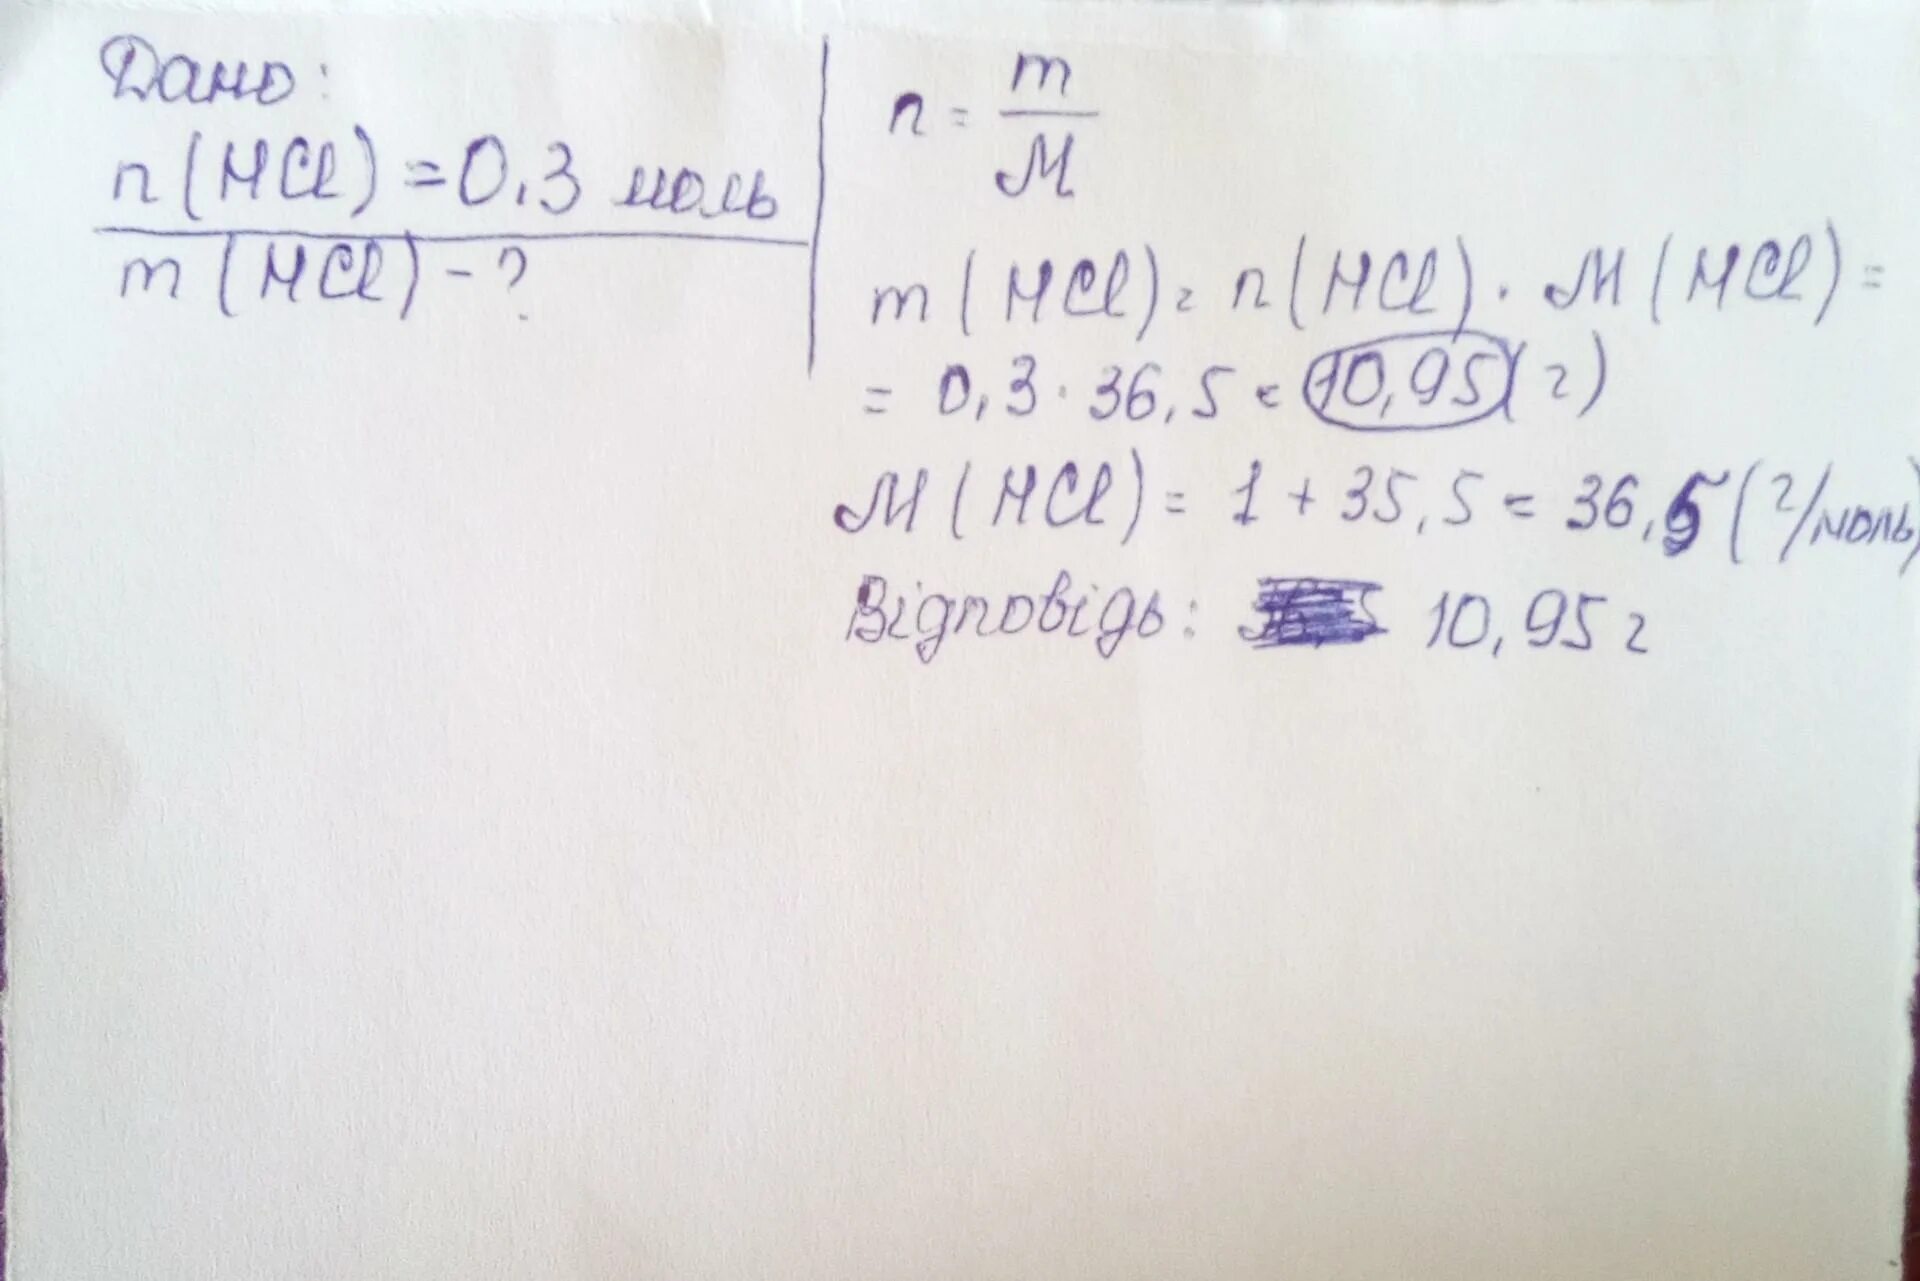 Дано:
n(HCl) = 0,3 моль
m(HCl) - ?
n = m/M
m(HCl) = n(HCl) · M(HCl) =
= 0,3 · 36,5 = 10,95 (г)
M(HCl) = 1 + 35,5 = 36,5 (г/моль)
Відповідь: 10,95 г